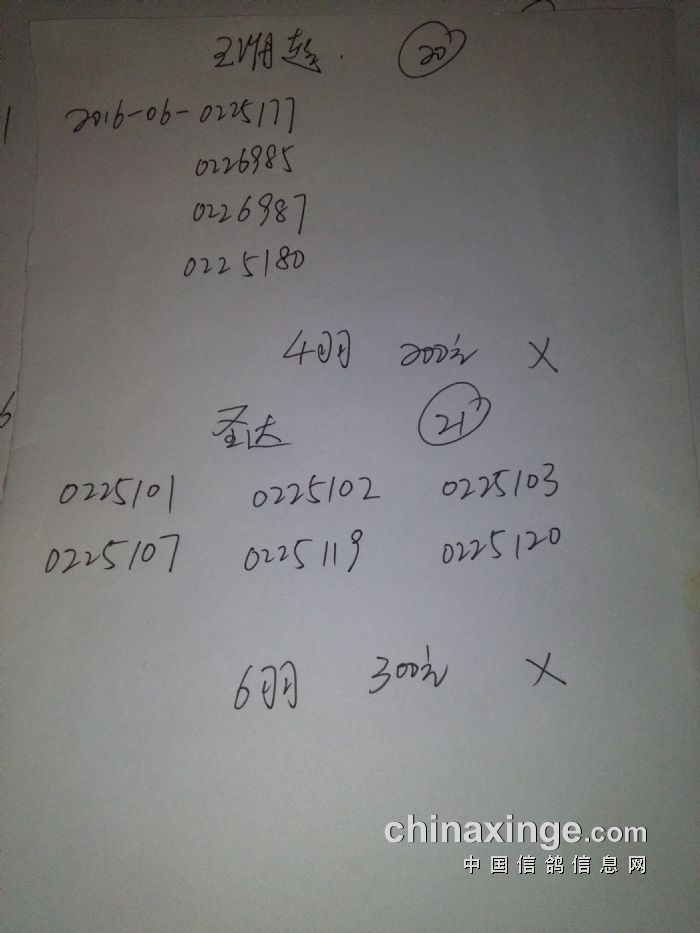 王 20
2016-06-0225177
0226985
0226987
0225180
4羽 200元 X
圣达 21
0225101 0225102 0225103
0225107 0225119 0225120
6羽 300元 X
chinaxinge.com
中国信鸽信息网